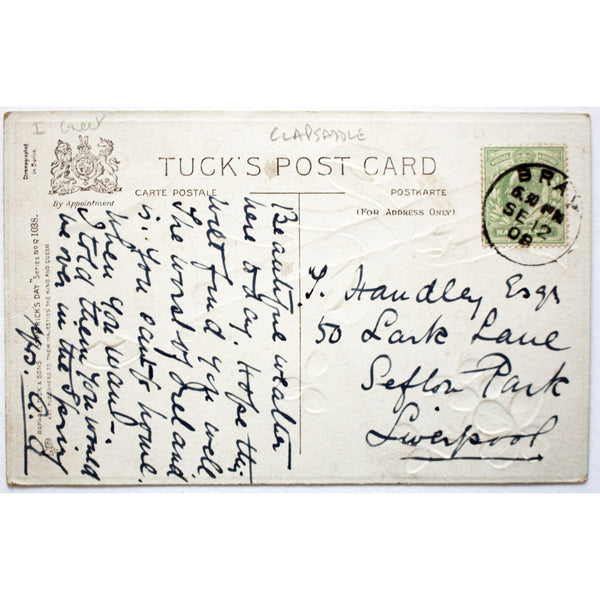 CLAPSADDLE
TUCK'S POST CARD
CARTE POSTALE
POSTKARTE
(FOR ADDRESS ONLY)
Chromographed
in Berlin
By Appointment
RAPHAEL TUCK & SONS "ST PATRICK'S DAY" Series No R 1038.
ART PUBLISHERS TO THEIR MAJESTIES THE KING AND QUEEN
BRAY
6.30 PM
SE 12
08
Beautiful weather
here today. Hope this
will find you well
The worst of Ireland
is: You can't home
when you want.
I told them you would
be over in the Spring
Handley Esqr
50 Lark Lane
Sefton Park
Liverpool